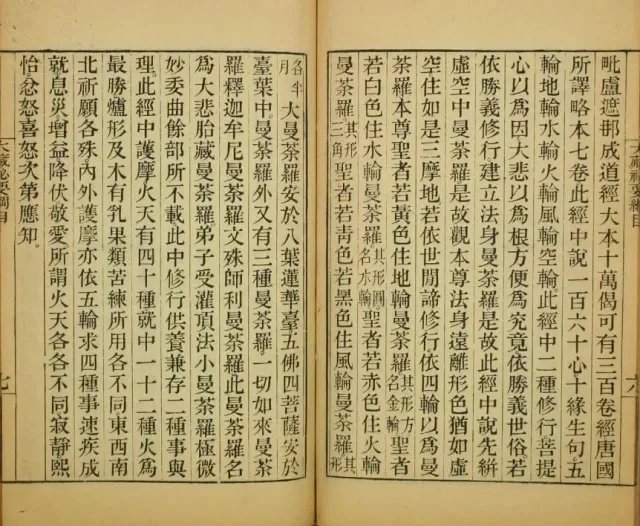 毗盧遮那成道經大本十萬偈可有三百卷經唐國
所譯略本七卷此經中說一百六十心十緣生句。五
輪地輪水輪火輪風輪空輪此經中二種修行菩提
心以爲因大悲以爲根方便爲究竟依勝義世俗若
依勝義修行建立法身曼荼羅是故此經中說先絣
虛空中曼荼羅是故觀本尊法身遠離形色猶如虛
空住如是三摩地若依世間諦修行依四輪以爲曼
荼羅本尊聖者若黃色住地輪曼荼羅其形方名金輪聖者
若白色住水輪曼荼羅其形圓名水輪聖者若赤色住火輪
曼荼羅其形三角聖者若青色若黑色住風輪曼荼羅其形
半月大曼荼羅安於八葉蓮華臺五佛四菩薩安於
臺葉中。曼荼羅外又有三種曼荼羅。一切如來曼荼
羅釋迦牟尼曼荼羅文殊師利曼荼羅此曼荼羅名
爲大悲胎藏曼荼羅弟子受灌頂法小曼荼羅極微
妙委曲餘部所不載此中修行供養兼存二種事與
理。此經中護摩火天有四十種就中一十二種火爲
最勝爐形及木有乳果類苦練所用各不同東西南
北祈願各殊內外護摩亦依五輪求四種事速疾成
就息災增益降伏敬愛所謂火天各各不同寂靜熙
怡忿怒喜怒次第應知。